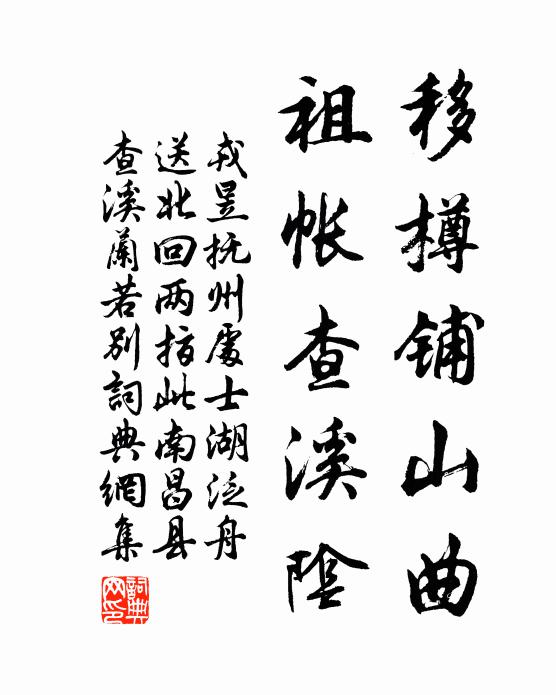 移樽铺山曲
祖帐查溪陰
戎昱抚州處士湖泛舟
送北回两指此南昌县
查溪蘭若别詞典網集
詞典網印